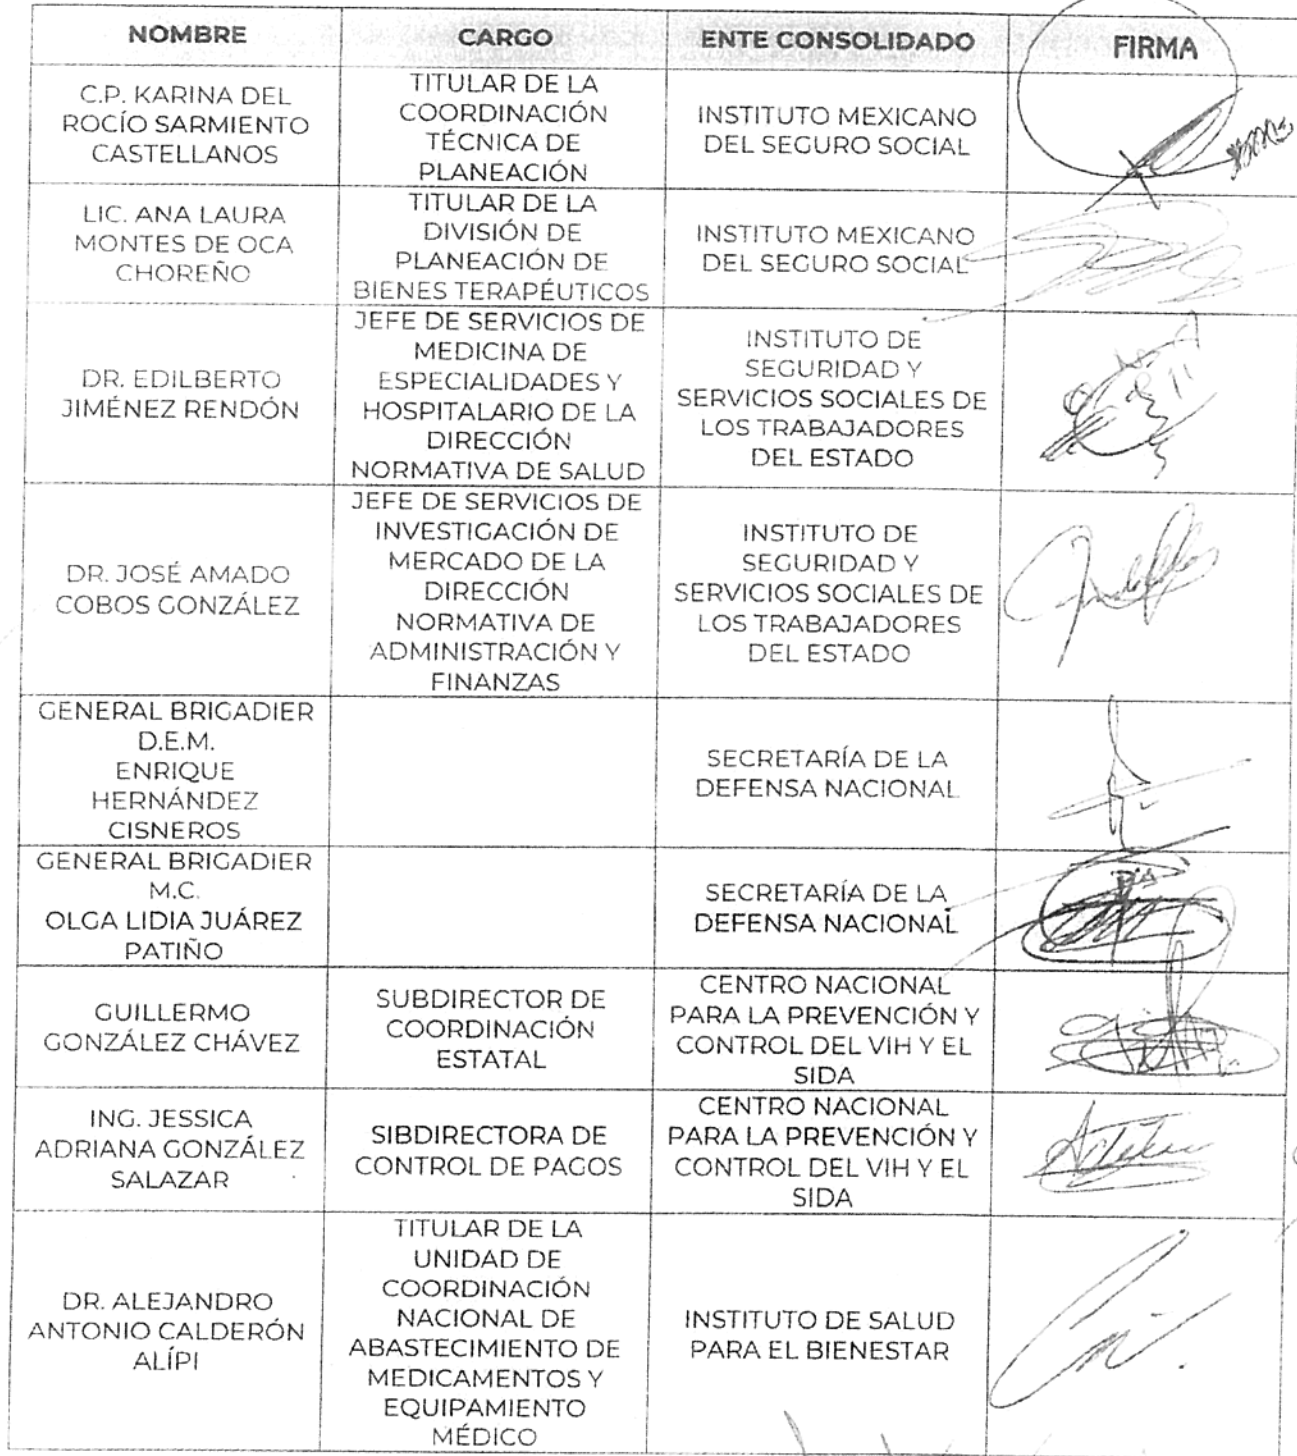 NOMBRE
CARGO
ENTE CONSOLIDADO
FIRMA
C.P. KARINA DEL
ROCÍO SARMIENTO
CASTELLANOS
TITULAR DE LA
COORDINACIÓN
TÉCNICA DE
PLANEACIÓN
INSTITUTO MEXICANO
DEL SEGURO SOCIAL
LIC. ANA LAURA
MONTES DE OCA
CHOREÑO
TITULAR DE LA
DIVISIÓN DE
PLANEACIÓN DE
BIENES TERAPÉUTICOS
INSTITUTO MEXICANO
DEL SEGURO SOCIAL
DR. EDILBERTO
JIMÉNEZ RENDÓN
JEFE DE SERVICIOS DE
MEDICINA DE
ESPECIALIDADES Y
HOSPITALARIO DE LA
DIRECCIÓN
NORMATIVA DE SALUD
INSTITUTO DE
SEGURIDAD Y
SERVICIOS SOCIALES DE
LOS TRABAJADORES
DEL ESTADO
DR. JOSÉ AMADO
COBOS GONZÁLEZ
JEFE DE SERVICIOS DE
INVESTIGACIÓN DE
MERCADO DE LA
DIRECCIÓN
NORMATIVA DE
ADMINISTRACIÓN Y
FINANZAS
INSTITUTO DE
SEGURIDAD Y
SERVICIOS SOCIALES DE
LOS TRABAJADORES
DEL ESTADO
GENERAL BRIGADIER
D.E.M.
ENRIQUE
HERNÁNDEZ
CISNEROS
SECRETARÍA DE LA
DEFENSA NACIONAL
GENERAL BRIGADIER
M.C.
OLGA LIDIA JUÁREZ
PATIÑO
SECRETARÍA DE LA
DEFENSA NACIONAL
GUILLERMO
GONZÁLEZ CHÁVEZ
SUBDIRECTOR DE
COORDINACIÓN
ESTATAL
CENTRO NACIONAL
PARA LA PREVENCIÓN Y
CONTROL DEL VIH Y EL
SIDA
ING. JESSICA
ADRIANA GONZÁLEZ
SALAZAR
SIBDIRECTORA DE
CONTROL DE PAGOS
CENTRO NACIONAL
PARA LA PREVENCIÓN Y
CONTROL DEL VIH Y EL
SIDA
DR. ALEJANDRO
ANTONIO CALDERÓN
ALÍPI
TITULAR DE LA
UNIDAD DE
COORDINACIÓN
NACIONAL DE
ABASTECIMIENTO DE
MEDICAMENTOS Y
EQUIPAMIENTO
MÉDICO
INSTITUTO DE SALUD
PARA EL BIENESTAR